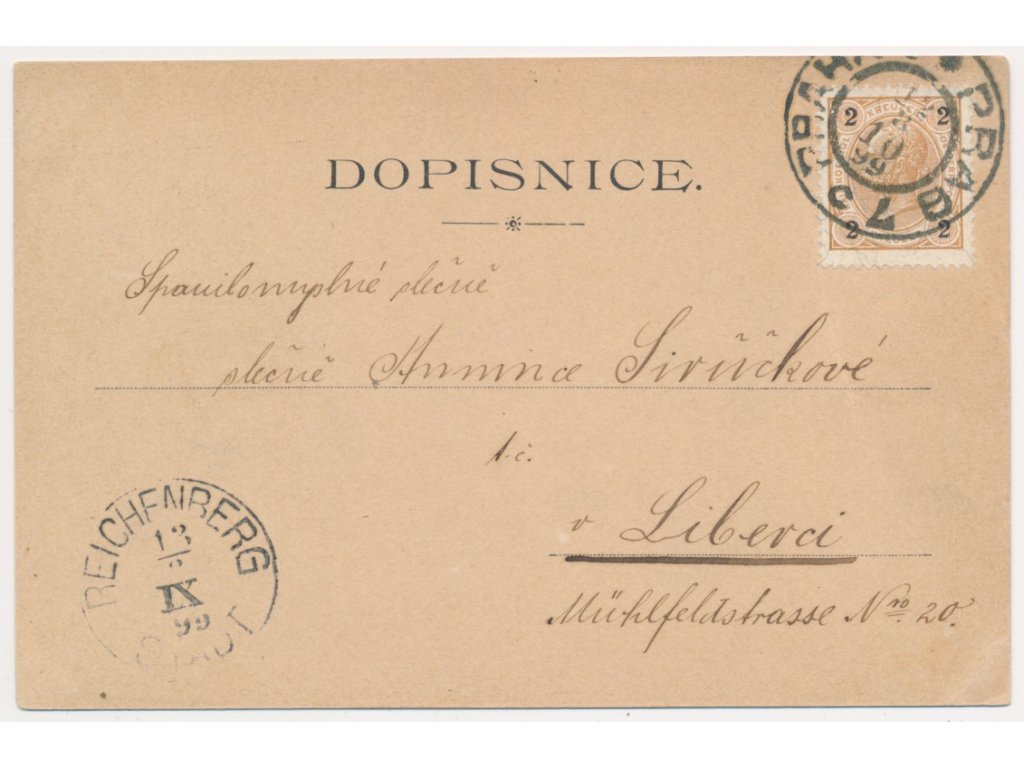 DOPISNICE.
PRAHA PRAG
2 KREUZER 2
2 2
Spanilomyslné slečně
slečně Annince Sirůčkové
t.č.
v Liberci
Mühlfeldstrasse Nro 20.
REICHENBERG
13
IX
99
STADT